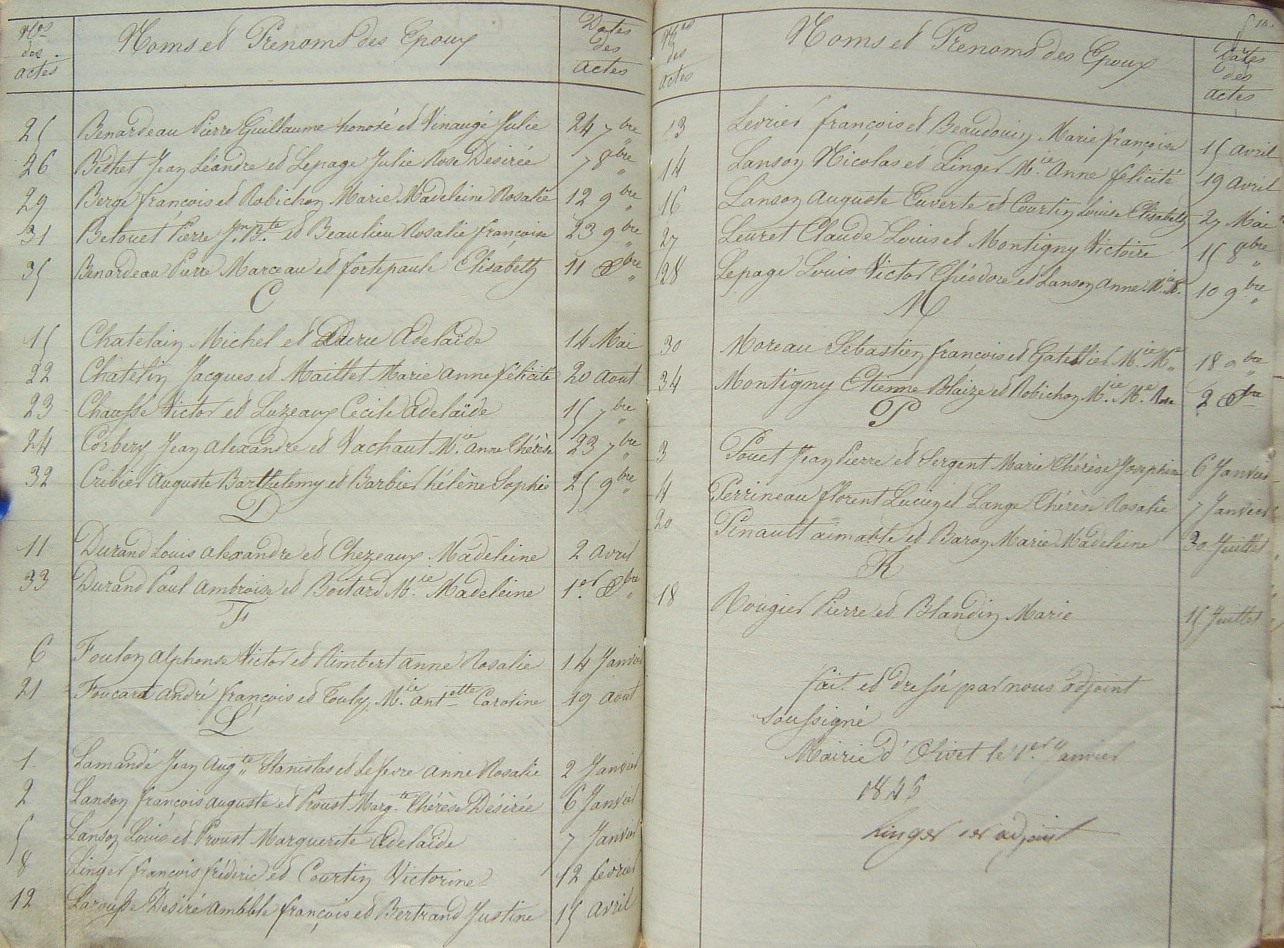 Nos des actes
Noms et Prenoms des Epoux
Dates des actes
25 Benardeau Pierre Guillaume honoré et Vinauge Julie 24 7bre
26 Bethet Jean Léandre et Lepage Julie Rose Désirée 7 8bre
29 Berge françois et Robichon Marie Madeleine Rosalie 12 9bre
31 Betouet Pierre Jn Bte et Beaulieu Rosalie françoise 23 9bre
35 Benardeau Pierre Marceau et fortepaule Elisabeth 11 Xbre
C
15 Chatelain Michel et Adelaïde 14 Mai
22 Chatelin Jacques et Maillet Marie Anne félicité 20 aout
23 Chausse Victor et Luzeaux Cecile adelaïde 15 7bre
24 Corbery Jean alexandre et Vachaut Mie anne Thérèse 23 7bre
32 Cribier Auguste Barthelemy et Barbier hélène Sophie 25 9bre
D
11 Durand Louis alexandre et Chezeaux Madeleine 2 avril
33 Durand Paul Ambroise et Boitard Mie Madeleine 1er Xbre
F
6 Foulon alphonse Victor et Rimbert anne Rosalie 14 Janvier
21 Foucart André françois et Touly Mie Antette Caroline 19 aout
L
1. Lamandé Jean Augte Stanislas et Lefevre Anne Rosalie 2 Janvier
2 Lanson françois auguste et Proust Margte Thérèse Désirée 6 Janvier
5 Lanson Louis et Proust Marguerite Adelaïde 7 Janvier
8 Linger françois frédéric et Courtin Victorine 12 fevrier
12 Larousse Désiré Amable françois et Bertrand Justine 15 avril
Nos des actes
Noms et Prenoms des Epoux
Dates des actes
13 Levrier françois et Beaudouin Marie françoise 15 avril
14 Lanson Nicolas et Linger Mie Anne félicité 19 avril
16 Lanson Auguste Euverte et Courtin Louise Elisabeth 27 Mai
27 Leuret Claude Louis et Montigny Victoire 15 8bre
28 Lepage Louis Victor Théodore et Lanson Anne 10 9bre
M
30 Moreau Sébastien françois et Gatellier Mie Me 18 9bre
34 Montigny Etienne Blaize et Robichon Mie Me Rose 2 Xbre
P
3 Pouet Jean Pierre et Sergent Marie Thérèse Josephine 6 Janvier
4 Perrineau florent Lucien et Lange Thérèse Rosalie 7 Janvier
20 Pinault aimable et Baron Marie Madeleine 30 Juillet
R
18 Rougier Pierre et Blandin Marie 15 Juillet
fait et dressé par nous adjoint
soussigné
Mairie d'Olivet le 1er Janvier
1845
Linger 1er adjoint